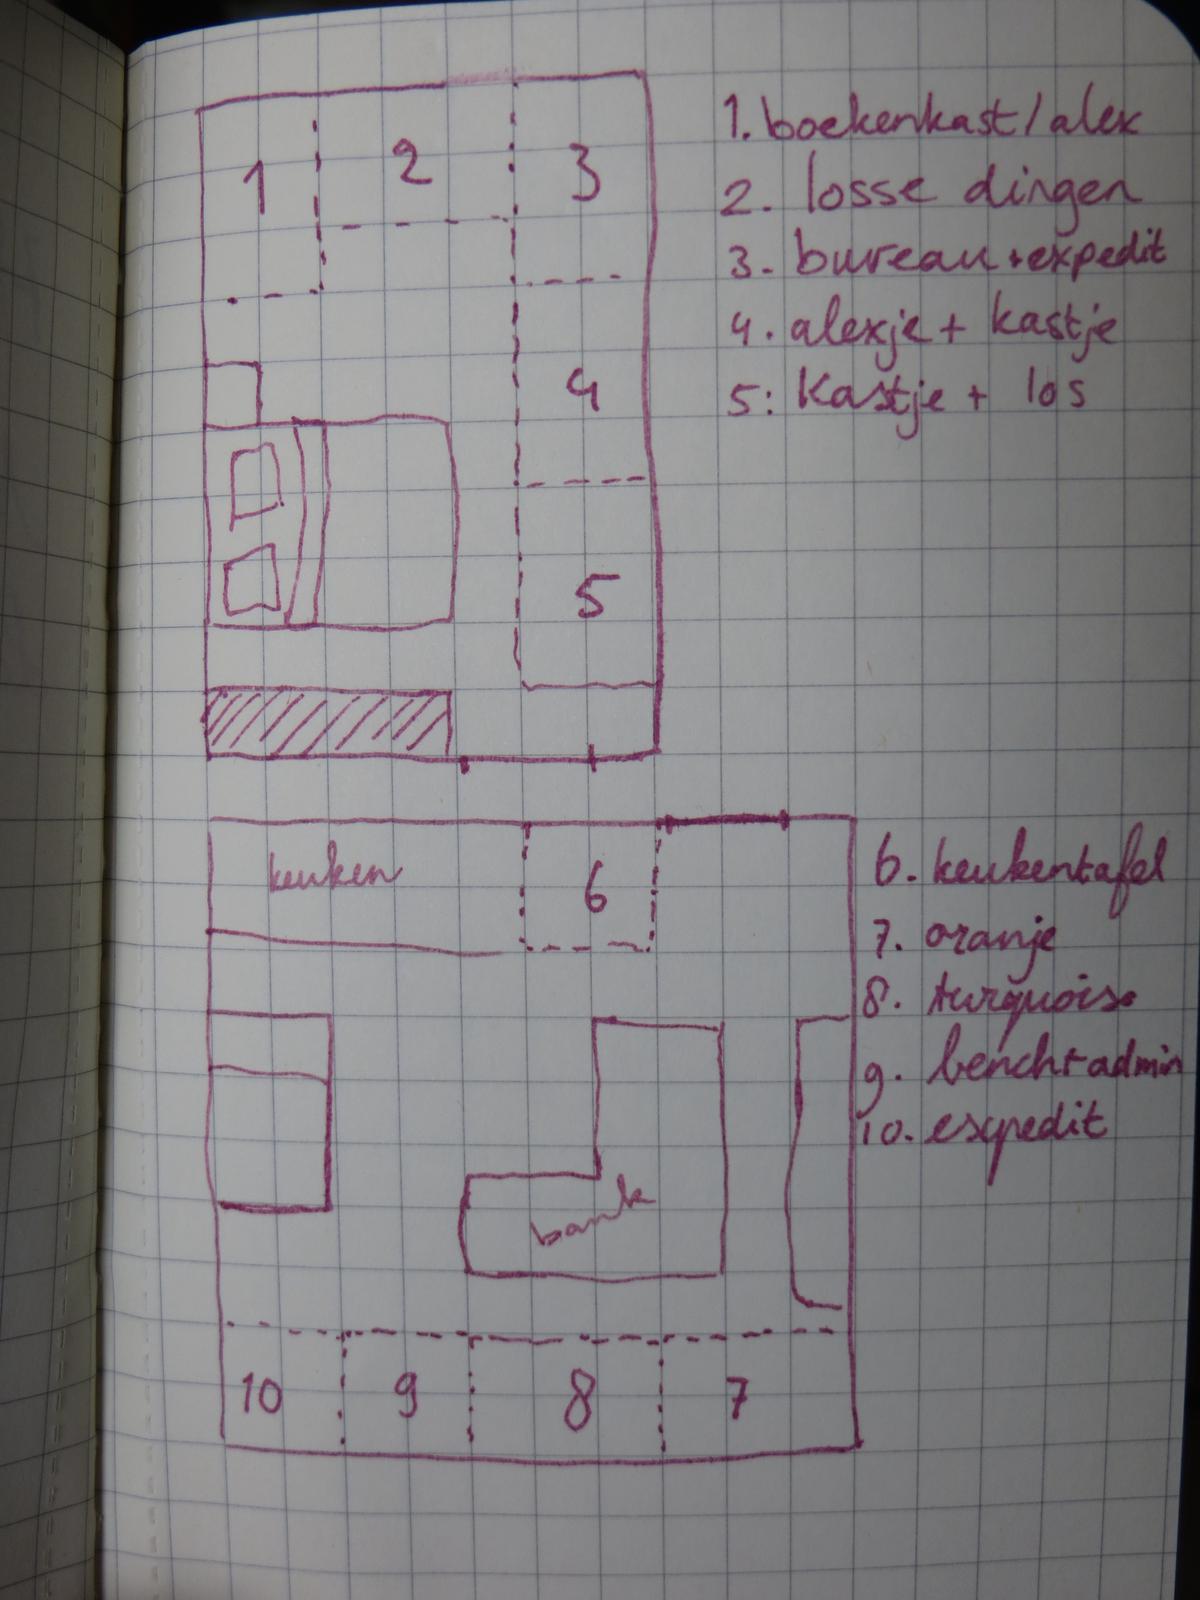 1
2
3
4
5
1. boekenkast/alex
2. losse dingen
3. bureau + expedit
4. alexje + kastje
5: Kastje + los
keuken
6
bank
10
9
8
7
6. keukentafel
7. oranje
8. turquoise
9. bench+admin
10. expedit